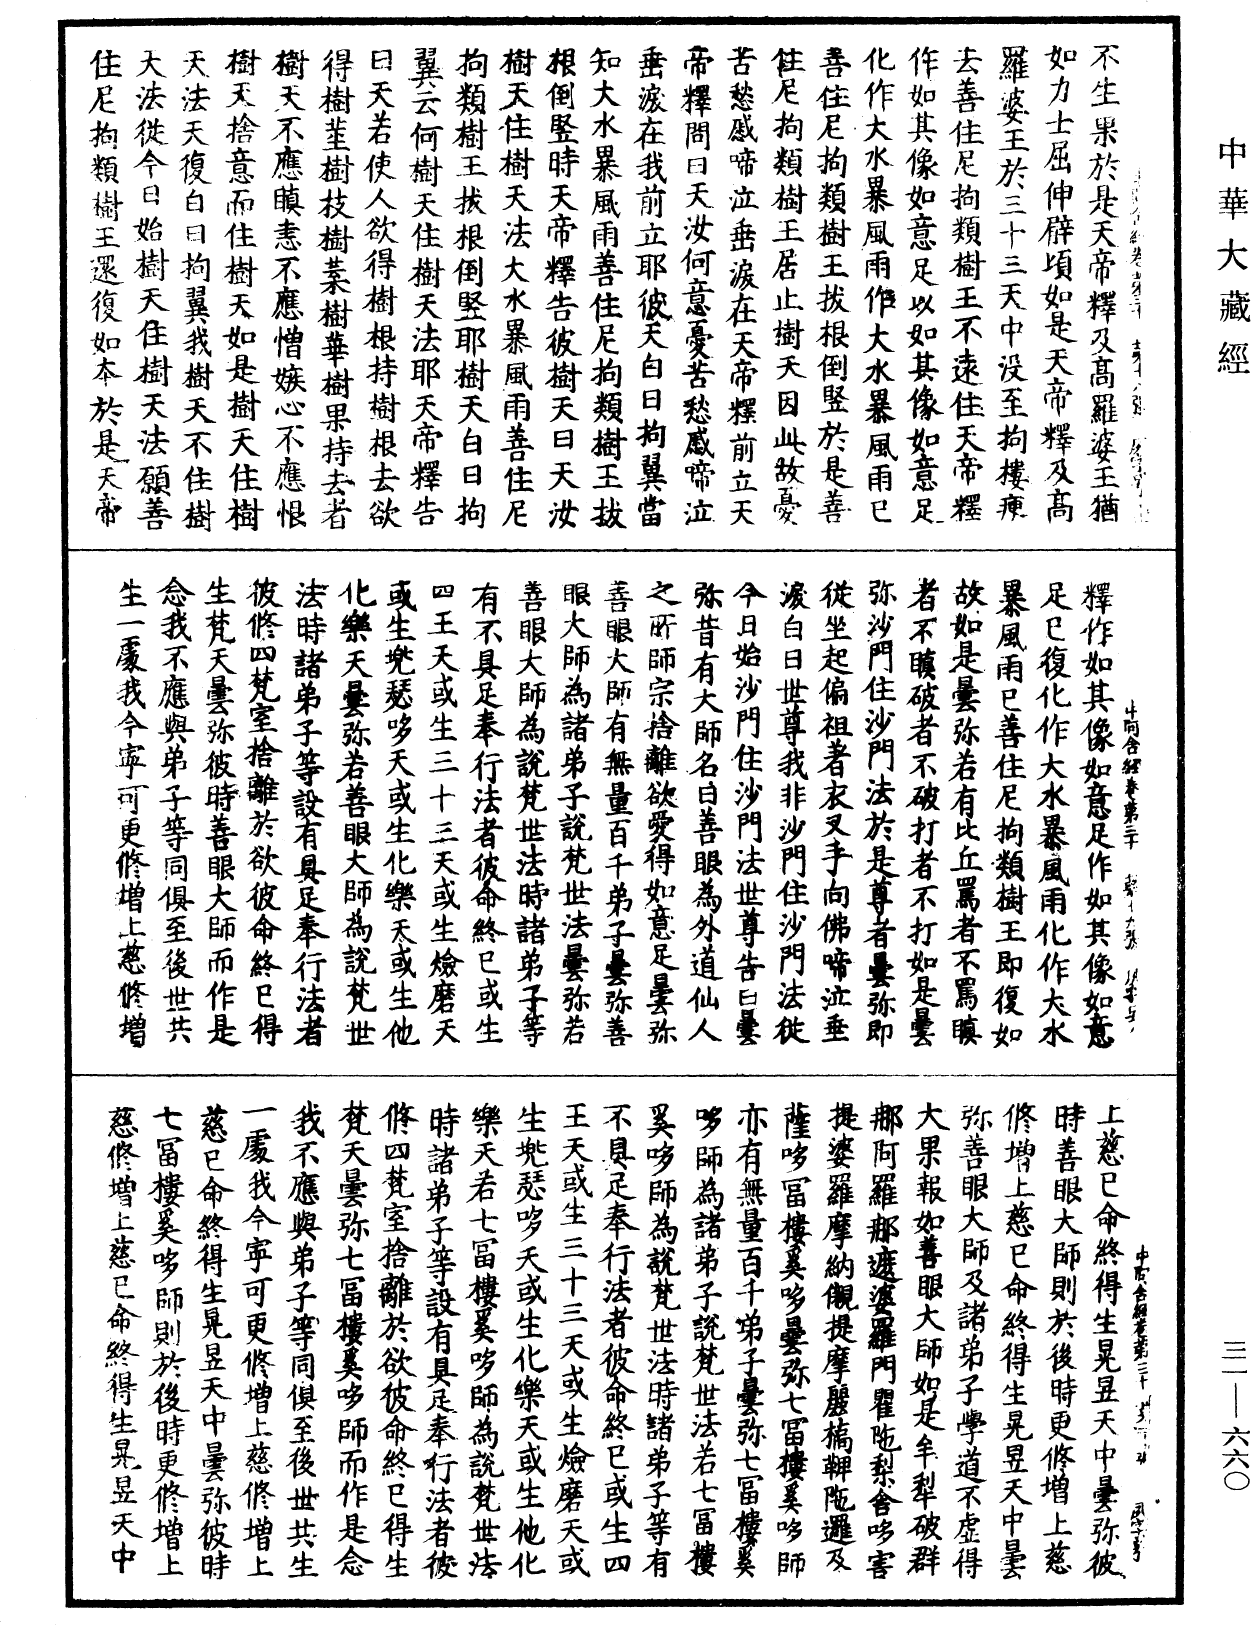 中華大藏經
三一—六六〇
不生果於是天帝釋及高羅婆王猶
如力士屈伸臂頃如是天帝釋及高
羅婆王於三十三天中沒至拘樓瘦
去善住尼拘類樹王不遠住天帝釋
作如其像如意足以如其像如意足
化作大水暴風雨作大水暴風雨已
善住尼拘類樹王拔根倒豎於是善
住尼拘類樹王居止樹天因此故憂
苦愁慼啼泣垂淚在天帝釋前立天
帝釋問曰天汝何意憂苦愁慼啼泣
垂淚在我前立耶彼天白曰拘翼當
知大水暴風雨善住尼拘類樹王拔
根倒豎時天帝釋告彼樹天曰天汝
樹天住樹天法大水暴風雨善住尼
拘類樹王拔根倒豎耶樹天白曰拘
翼云何樹天住樹天法耶天帝釋告
曰天若使人欲得樹根持樹根去欲
得樹莖樹枝樹葉樹華樹果持去者
樹天不應瞋恚不應憎嫉心不應恨
樹天捨意而住樹天如是樹天住樹
天法天復白曰拘翼我樹天不住樹
天法從今日始樹天住樹天法願善
住尼拘類樹王還復如本於是天帝
釋作如其像如意足作如其像如意
足已復化作大水暴風雨化作大水
暴風雨已善住尼拘類樹王即復如
故如是曇彌若有比丘罵者不罵瞋
者不瞋破者不破打者不打如是曇
彌沙門住沙門法於是尊者曇彌即
從坐起偏袒著衣叉手向佛啼泣垂
淚白曰世尊我非沙門住沙門法從
今日始沙門住沙門法世尊告曰曇
彌昔有大師名曰善眼為外道仙人
之所師宗捨離欲愛得如意足曇彌
善眼大師有無量百千弟子曇彌善
眼大師為諸弟子說梵世法曇彌若
善眼大師為說梵世法時諸弟子等
有不具足奉行法者彼命終已或生
四王天或生三十三天或生焰磨天
或生兜瑟哆天或生化樂天或生他
化樂天曇彌若善眼大師為說梵世
法時諸弟子等設有具足奉行法者
彼修四梵室捨離於欲彼命終已得
生梵天曇彌彼時善眼大師而作是
念我不應與弟子等同俱至後世共
生一處我今寧可更修增上慈修增
上慈已命終得生晃昱天中曇彌彼
時善眼大師則於後時更修增上慈
修增上慈已命終得生晃昱天中曇
彌善眼大師及諸弟子學道不虛得
大果報如善眼大師如是牟犁破群
那阿羅那遮婆羅門瞿陀梨舍哆害
提婆羅摩納儭提摩麗橋鞞陀邏及
薩哆富樓奚哆曇彌七富樓奚哆師
亦有無量百千弟子曇彌七富樓奚
哆師為諸弟子說梵世法若七富樓
奚哆師為說梵世法時諸弟子等有
不具足奉行法者彼命終已或生四
王天或生三十三天或生焰磨天或
生兜瑟哆天或生化樂天或生他化
樂天若七富樓奚哆師為說梵世法
時諸弟子等設有具足奉行法者彼
修四梵室捨離於欲彼命終已得生
梵天曇彌七富樓奚哆師而作是念
我不應與弟子等同俱至後世共生
一處我今寧可更修增上慈修增上
慈已命終得生晃昱天中曇彌彼時
七富樓奚哆師則於後時更修增上
慈修增上慈已命終得生晃昱天中